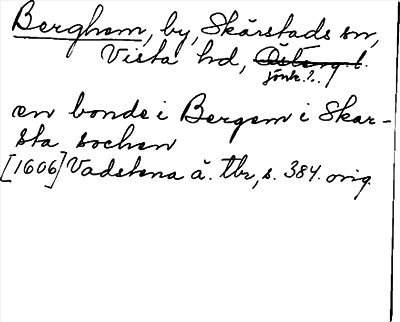 Berghem, by, Skärstads sn,
Vista hd, Österg. l.
jönk. l.
en bonde i Bergem i Skar-
sta sochen
[1606] Vadstena ä. tbr, s. 384. orig.